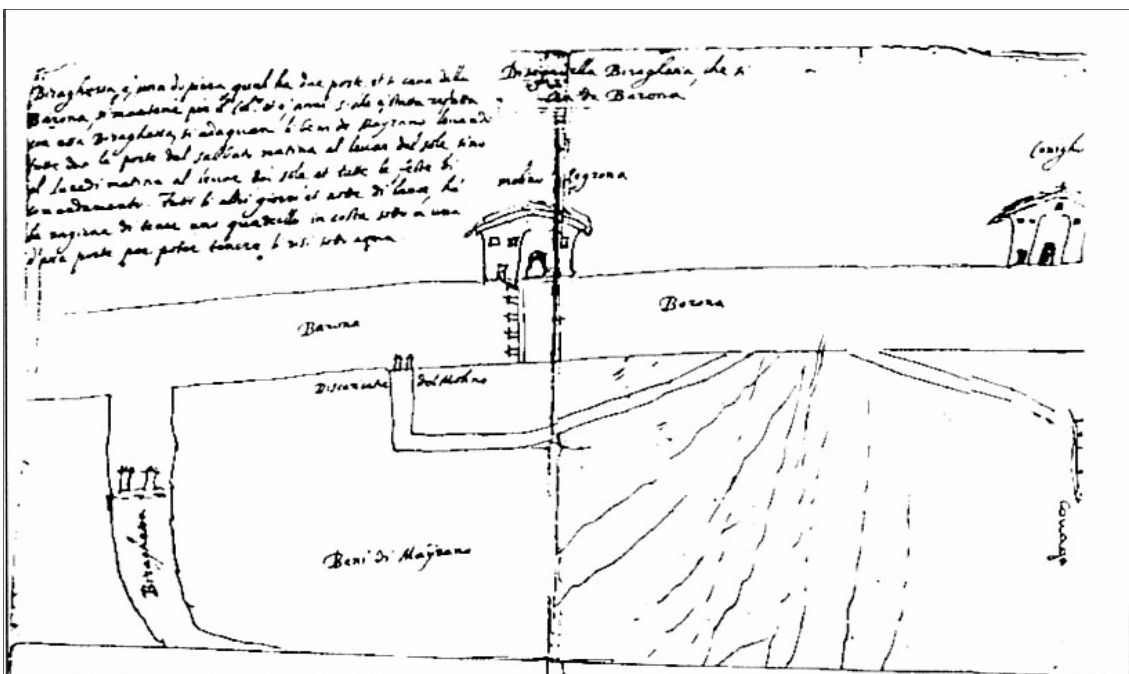 Biraghessa, è una di piera qual ha due porte et si cava della
Barona, si mantene per anni
con essa Biraghessa, si adaquan li beni de Mayrano levando
tutte due le porte dal sabbato matina al levar del sole sino
al Lunedi matina al levar del sole et tutte le feste di
comandamento. Tutti li altri giorni et notte di ha
la ragione di tener uno quadrello in costa sotto a una
porta per poter tenere li risi sott aqua
Disegno della Biraghessa, che si
cava da Barona
molino Segrona
Conigh
Barona
Barona
Discaricate del Molino
Biraghessa
Beni di Mayrano